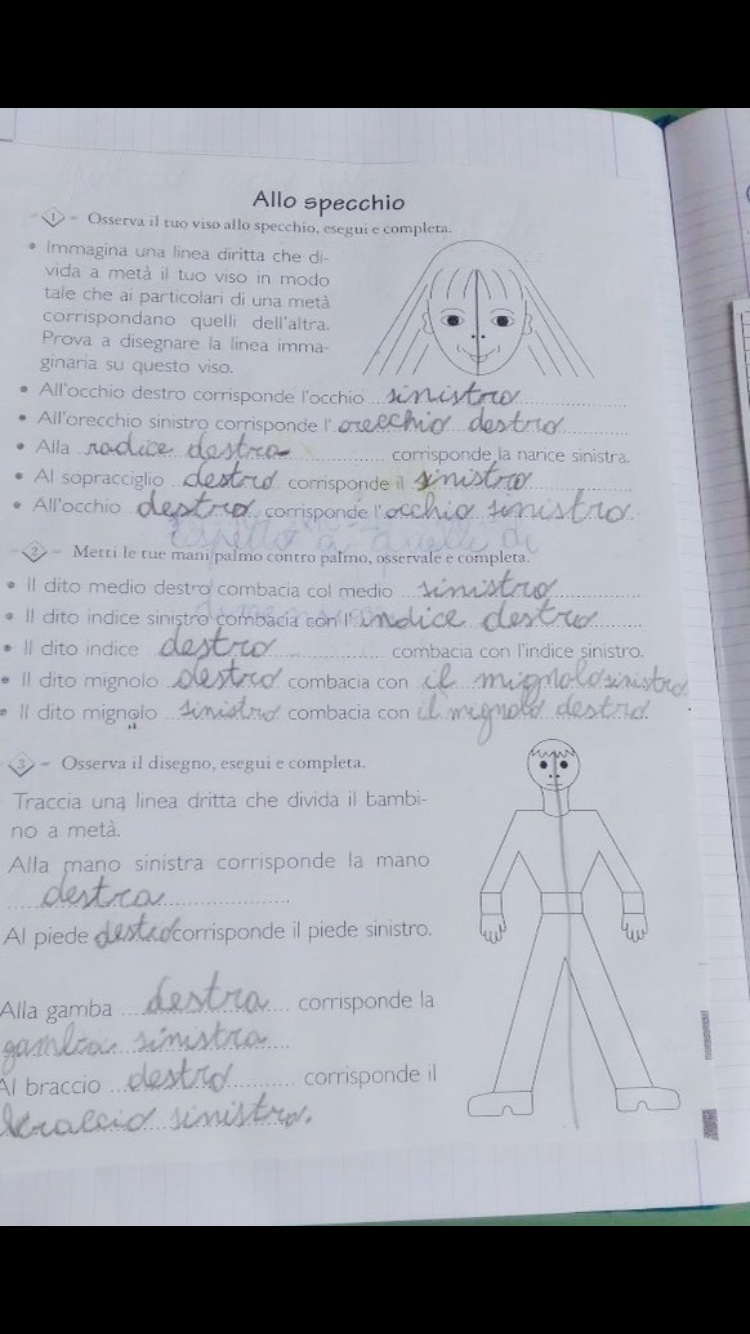 Allo specchio
1 - Osserva il tuo viso allo specchio, esegui e completa.
• Immagina una linea diritta che di-
vida a metà il tuo viso in modo
tale che ai particolari di una metà
corrispondano quelli dell'altra.
Prova a disegnare la linea imma-
ginaria su questo viso.
• All'occhio destro corrisponde l'occhio sinistro
• All'orecchio sinistro corrisponde l'orecchio destro
• Alla radice destra corrisponde la narice sinistra.
• Al sopracciglio destro corrisponde il sinistro
• All'occhio destro corrisponde l'occhio sinistro.
2 - Metti le tue mani palmo contro palmo, osservale e completa.
• Il dito medio destro combacia col medio sinistro
• Il dito indice sinistro combacia con l'indice destro
• Il dito indice destro combacia con l'indice sinistro.
• Il dito mignolo destro combacia con il mignolo sinistro
• Il dito mignolo sinistro combacia con il mignolo destro.
3 - Osserva il disegno, esegui e completa.
Traccia una linea dritta che divida il bambi-
no a metà.
Alla mano sinistra corrisponde la mano
destra
Al piede destro corrisponde il piede sinistro.
Alla gamba destra corrisponde la
gamba sinistra
Al braccio destro corrisponde il
braccio sinistro.